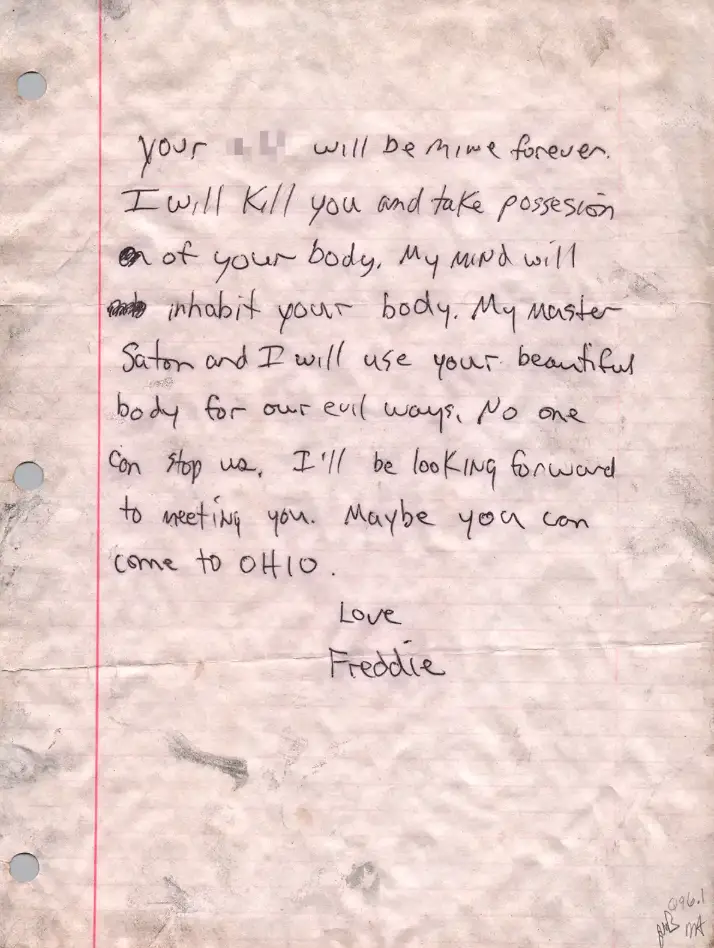 your will be mine forever.
I will kill you and take possesion
of your body. My mind will
inhabit your body. My master
Saton and I will use your beautiful
body for our evil ways. No one
can stop us. I'll be looking forward
to meeting you. Maybe you can
come to OHIO.
Love
Freddie
096.1
MA